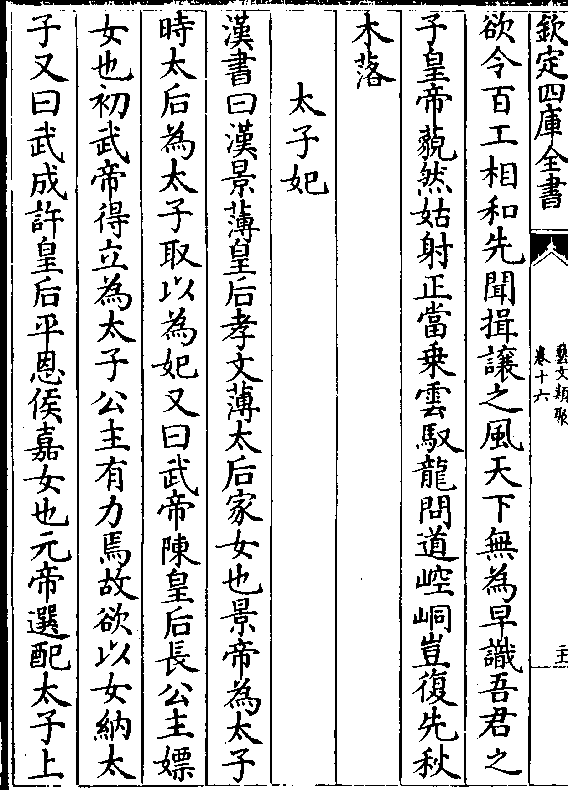 欽定四庫全書
藝文類聚
卷十六
欲令百工相和先聞揖讓之風天下無為早識吾君之
子皇帝藐然姑射正當乗雲馭龍問道崆峒豈復先秋
木落
太子妃
漢書曰漢景薄皇后孝文薄太后家女也景帝為太子
時太后為太子取以為妃又曰武帝陳皇后長公主嫖
女也初武帝得立為太子公主有力焉故欲以女納太
子又曰武成許皇后平恩侯嘉女也元帝選配太子上